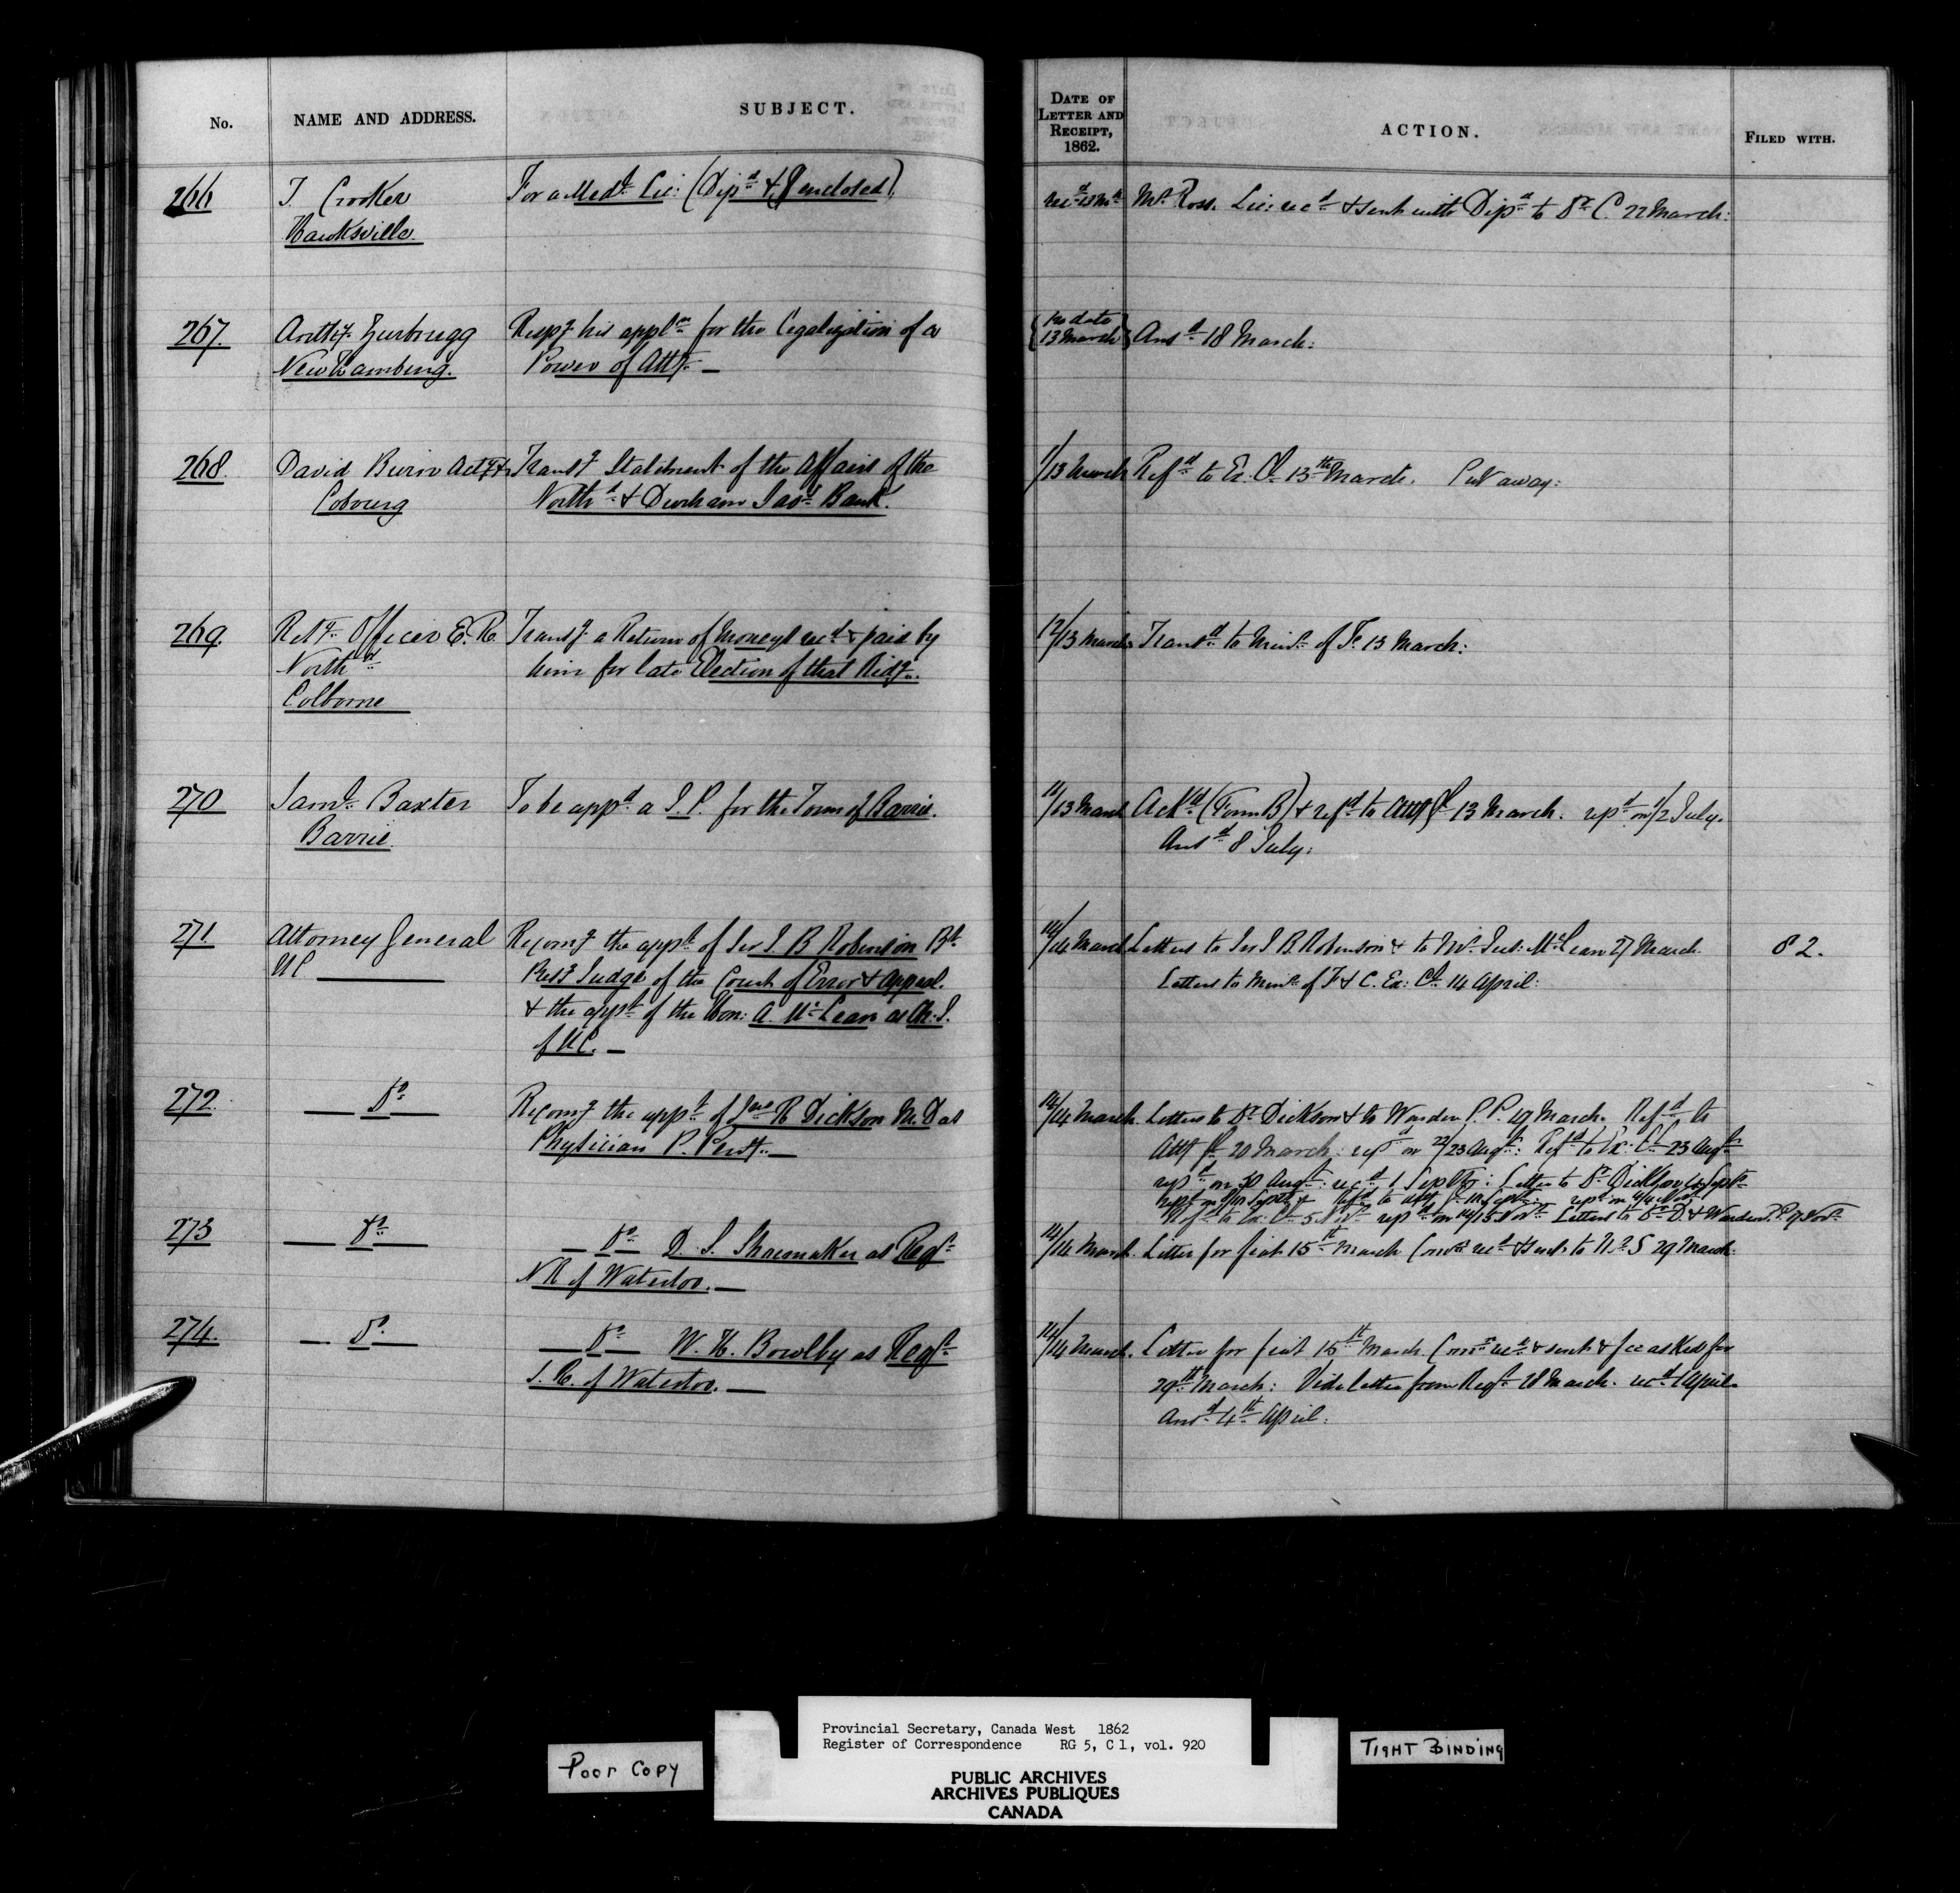 No. NAME AND ADDRESS. SUBJECT. DATE OF LETTER AND RECEIPT, 1862. ACTION. FILED WITH.
266 T. Crooker For a Medl. Lic: (Dipd & enclosed) recd 13 Mh Mr. Ross. Lic: recd & sent with Dipd to Dr C. 22 March:
Hawksville.
267. Anthy. Zurbrugg Respg his appln for the legalization of a {no date 13 March} Ansd 18 March:
New Hamburg. Power of Atty. —
268. David Burn Transg Statement of the Affairs of the /13 March Refd to Ex. Cl 13th March. Put away:
Cobourg North d & Durham Savs Bank.
269. Retg. Officer E. R. Transg a Return of Moneys recd & paid by 12/13 March Transd to Minr of F. 13 March:
North d him for late Election of that Ridg.
Colborne
270 Saml. Baxter To be appd a J. P. for the Town of Barrie. 11/13 March Ackd (Form B) & refd to Atty Gl 13 March. repd on 1/2 July.
Barrie. Ansd 8 July:
271. Attorney General Recomg the appt of Sir J. B Robinson Bt. 14/14 March Letters to Sir J B. Robinson & to Mr Jus: McLean 27 March. 82.
UC Presg Judge of the Court of Error & Appeal. Letters to Minr of F & C. Ex: Cl 14 April:
& the appt of the Hon: A. McLean as Ch: J.
of UC. —
272. — Do — Recomg the appt of Jno R Dickson M. D as 14/14 March. Letters to Dr Dickson & to Warden P. P. 19 March. Refd to
Physician P. Penty. — Atty Gl 20 March: repd on 22/23 Augt: Refd to Ex: Cl 23 Augt
repd on 30 Augt: recd 1 Septr: Letter to Dr Dickson Septr
Refd to Atty Gl Septr: repd on Novr
Refd to Ex: Cl 5 Novr repd on 14/15 Novr Letters to Dr D. & Warden P. P. Novr
273 — Do — — Do — D. S. Shoemaker as Regr 14/14 March. Letter for fiat 15th March Comn recd & sent to Mr S 29 March:
NR of Waterloo. —
274. — Do — — Do — W. H. Bowlby as Regr 14/14 March. Letter for fiat 15th March Comn recd & sent & fee asked for
S. R. of Waterloo. — 29th March: Vide letter from Regr 28 March. recd 1 April.
Ansd 4th April:
Provincial Secretary, Canada West 1862
Register of Correspondence RG 5, C 1, vol. 920
Poor Copy
TIGHT BINDING
PUBLIC ARCHIVES
ARCHIVES PUBLIQUES
CANADA